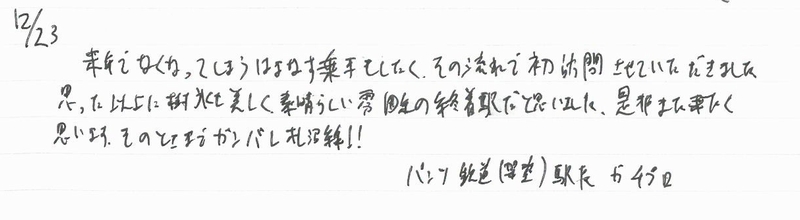 12/23
来年でなくなってしまうはまなす乗車をしたく、その流れで初訪問させていただきました
思った以上に樹氷も美しく素晴らしい雰囲気の終着駅だと思いました。是非また来たく
思います。そのときまでガンバレ札沼線!!
パンツ鉄道(架空)駅長